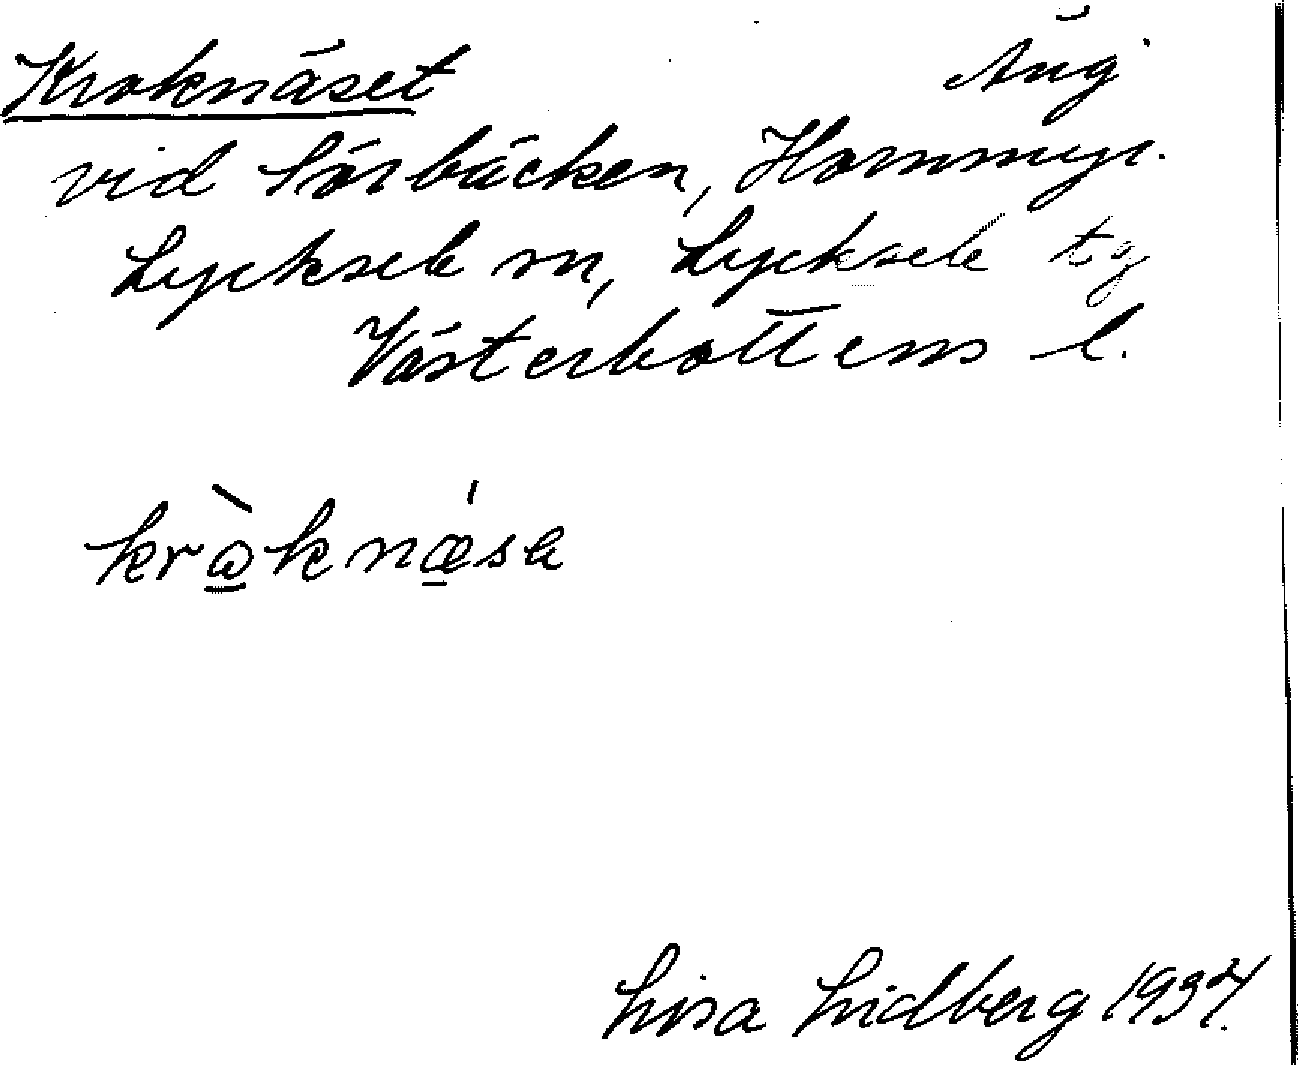 Kroknäset Äng
vid Sörbäcken, Hornmyr.
Lycksele sn, Lycksele tg
Västerbottens l.
krɷ̀knǽsɐ
Lisa Lidberg 1937.